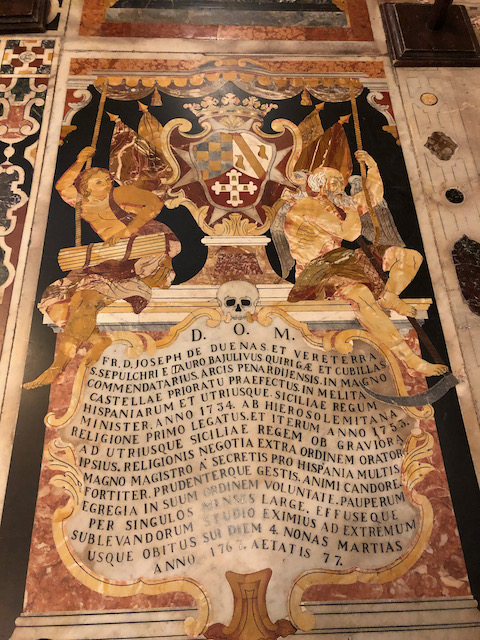 D. O. M.
FR. D. JOSEPH DE DUENAS, ET VERETERRA,
S. SEPULCHRI E TAURO, BAJULIVUS QUIRIGÆ ET CUBILLAS
COMMENDATARIUS, ARCIS PENARDUENSIS, IN MAGNO
CASTELLÆ PRIORATU PRÆFECTUS, IN MELITA
HISPANIARUM ET UTRIUSQUE SICILIÆ REGUM
MINISTER, ANNO 1734. AB HIEROSOLEMITANA
RELIGIONE PRIMO LEGATUS, ET ITERUM, ANNO 1753.
AD UTRIUSQUE SICILIÆ REGEM OB GRAVIORA
IPSIUS, RELIGIONIS NEGOTIA EXTRA ORDINEM ORATOR,
MAGNO MAGISTRO A SECRETIS PRO HISPANIA MULTIS
FORTITER, PRUDENTERQUE GESTIS, ANIMI CANDORE,
EGREGIA IN SUUM ORDINEM VOLUNTATE, PAUPERUM
PER SINGULOS MENSES LARGE, EFFUSEQUE
SUBLEVANDORUM STUDIO EXIMIUS AD EXTREMUM
USQUE OBITUS SUI DIEM 4. NONAS MARTIAS
ANNO ÆTATIS 77.